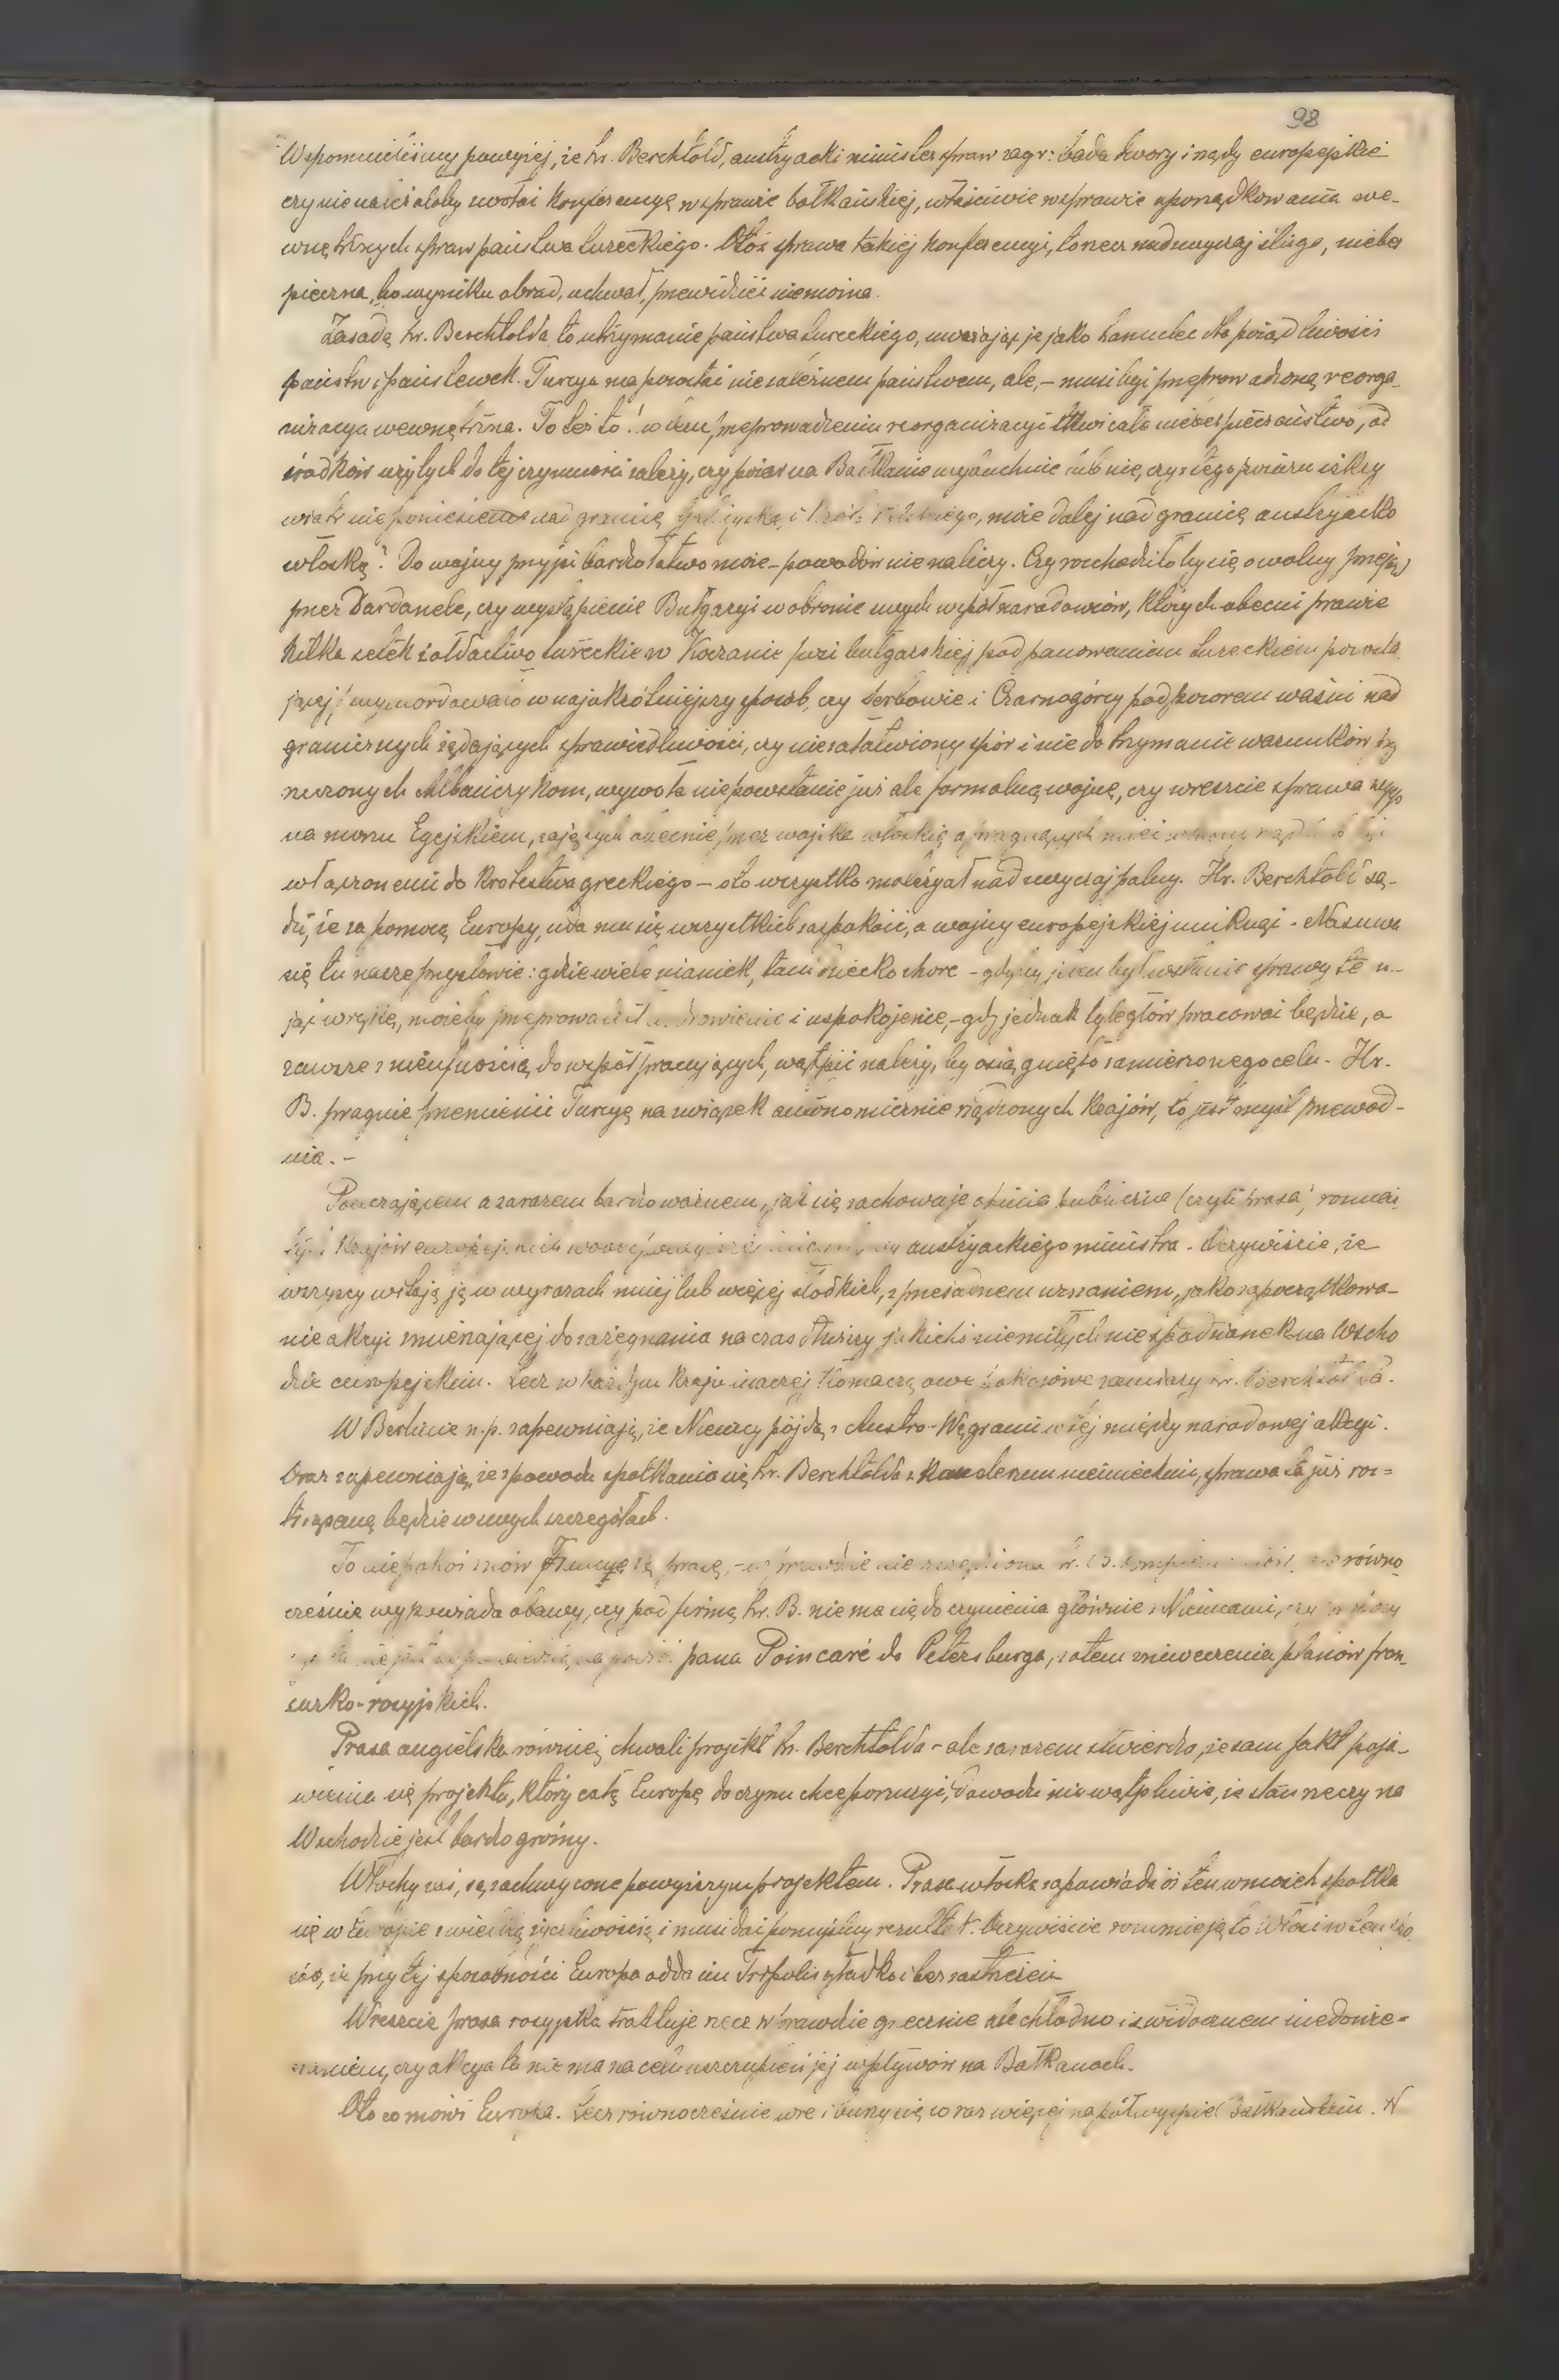 98
Wspomnieliśmy powyżej, że hr. Berchtold, austryacki minister spraw zagr: bada dwory i rządy europejskie
czy nie należałoby zwołać konferencyę w sprawie bałkańskiej, właściwie w sprawie uporządkowania we-
wnętrznych spraw państwa tureckiego. Otóż sprawa takiej konferencyi, to rzecz nadzwyczaj ślizga, niebez
pieczna, bo wyniku obrad, uchwał, przewidzieć nie można.
Zasadą hr. Berchtolda, to utrzymanie państwa tureckiego, uważając je jako hamulec dla pożądliwości
państw i państewek. Turcya ma pozostać niezależnem państwem, ale, – musi być przeprowadzoną reorga-
nizacya wewnętrzna. To też to! w tem przeprowadzeniu reorganizacyi tkwi całe niebezpieczeństwo, od
środków użytych do tej czynności zależy, czy pożar na Bałkanie wybuchnie lub nie, czy z tego pożaru iskry
wiatr nie poniesie nad granicę i może dalej nad granicę austryacko
włoską? Do wojny przyjść bardzo łatwo może – powodów nie na liczy. Czy rozchodziłoby się o wolny przejazd
przez Dardanele, czy wystąpienie Bułgaryi w obronie swych współnarodowców, których obecnie prawie
kilka setek żołdactwo tureckie w Koczanie (wsi bułgarskiej pod panowaniem tureckiem pozosta
jącej) wymordowało w najokrótniejszy sposób, czy Serbowie i Czarnogórcy pod pozorem waśni nad
granicznych żądających sprawiedliwości, czy niezałatwiony spór i nie dotrzymanie warunków przy
rzeczonych Albańczykom, wywoła nie powstanie już ale formalną wojnę, czy wreszcie sprawa wysp
na morzu Egejskiem, zajętych obecnie przez wojska włoskie a pragnących mieć
włączonemi do Królestwa greckiego – oto wszystko materyał nadzwyczaj palny. Hr. Berchtold są-
dzi, że za pomocą Europy, uda mu się wszystkich zaspokoić, a wojny europejskiej uniknąć. Nasuwa
się tu nasze przysłowie: gdzie wiele nianiek, tam dziecko chore – gdyby jeden był w stanie sprawy te u-
jąć w rękę, możeby przeprowadził uzdrowienie i uspokojenie, – gdy jednak tyle głów pracować będzie, a
zawsze z nieufnością do współpracujących, wątpić należy, by osiągnięto zamierzonego celu. Hr.
B. pragnie przemienić Turcyę na związek autonomicznie rządzonych krajów, to jest myśl przewod-
nia. –
Pouczającem a zarazem bardzo ważnem, jak się zachowuje opinia publiczna (czyli prasa) rozmai
tych krajów europejskich wobec austryackiego ministra. Oczywiście, że
wszyscy witają ją w wyrazach mniej lub więcej słodkich, z przesadnem uznaniem, jako zapoczątkowa-
nie akcyi zmierzającej do zażegnania na czas dłuższy jakichś niemiłych niespodzianek na Wscho
dzie europejskim. Lecz w każdym kraju inaczej tłomaczą owe pokojowe zamiary hr. Berchtolda.
W Berlinie n.p. zapewniają, że Niemcy pójdą z Austro-Węgrami w tej międzynarodowej akcyi.
Oraz zapewniają, że z powodu spotkania się hr. Berchtolda z kanclerzem niemieckim, sprawa ta już roz=
trząsaną będzie w swych szczegółach.
To niepokoi znów Francyę i jej prasę, – wprawdzie nie szczędzi ona hr. B. komplementów, ale równo
cześnie wypowiada obawy, czy pod firmą hr. B. nie ma się do czynienia głównie z Niemcami, czy
pana Poincaré do Petersburga, zatem zniweczenia planów fran-
cusko-rosyjskich.
Prasa angielska również chwali projekt hr. Berchtolda – ale zarazem stwierdza, że sam fakt poja-
wienia się projektu, który całą Europę do czynu chce poruszyć, dowodzi niewątpliwie, iż stan rzeczy na
Wschodzie jest bardzo groźny.
Włochy zaś, są zachwycone powyższym projektem. Prasa włoska zapowiada iż ten wniosek spotka
się w Europie z wielką życzliwością i musi dać pomyślny rezultat. Oczywiście rozumieją to Włosi w ten spo
sób, iż przy tej sposobności Europa odda im Tripolis gładko i bez zastrzeżeń
Wreszcie prasa rosyjska traktuje rzecz wprawdzie grzecznie ale chłodno i z widocznem niedowie=
rzaniem, czy akcya ta nie ma na celu uszczuplenie jej wpływów na Bałkanach.
Oto co mówi Europa. Lecz równocześnie wre i burzy się coraz więcej na półwyspie Bałkańskim. W